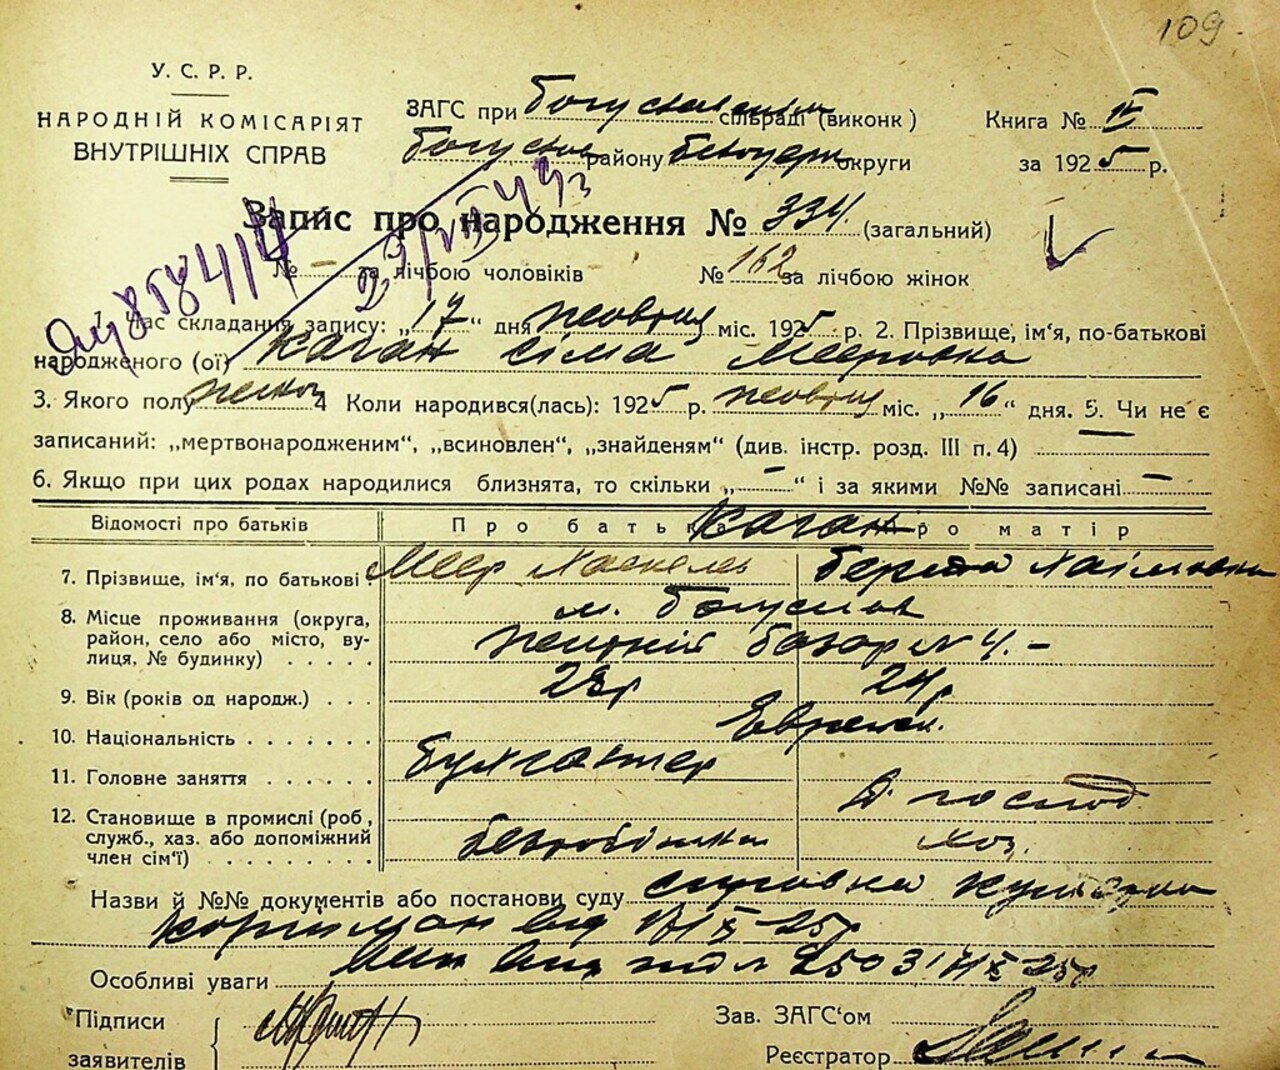 109
У. С. Р. Р.
НАРОДНІЙ КОМІСАРІЯТ
ВНУТРІШНІХ СПРАВ
ЗАГС при Богуславським сільраді (виконк)
Богуслав району Білоцерк округи
Книга №
за 1925 р.
Запис про народження № 334 (загальний)
№ – за лічбою чоловіків № 162 за лічбою жінок
1. Час складання запису: „17“ дня жовтня міс. 1925 р. 2. Прізвище, ім‘я, по-батькові
народженого (ої) Каган Сіма Мееровна
3. Якого полу жіноч 4 Коли народився(лась): 1925 р. жовтня міс. „16“ дня. 5. Чи не є
записаний: „мертвонародженим“, „всиновлен“, „знайденям“ (див. інстр. розд. III п. 4)
6. Якщо при цих родах народилися близнята, то скільки „–“ і за якими №№ записані –
Відомості про батьків Про батька Каган Про матір
7. Прізвище, ім‘я, по батькові Меер Берта Хаімовна
8. Місце проживання (округа, район, село або місто, вулиця, № будинку) м. Богуслав
базар № 4. –
9. Вік (років од народж.) 28р 24р
10. Національність
11. Головне заняття бухгалтер
Д. господ
12. Становище в промислі (роб, служб., хаз. або допоміжний член сім‘ї) безробітний хоз.
Назви й №№ документів або постанови суду справка
від
Особливі уваги
Підписи
заявителів
Зав. ЗАГС‘ом
Реєстратор